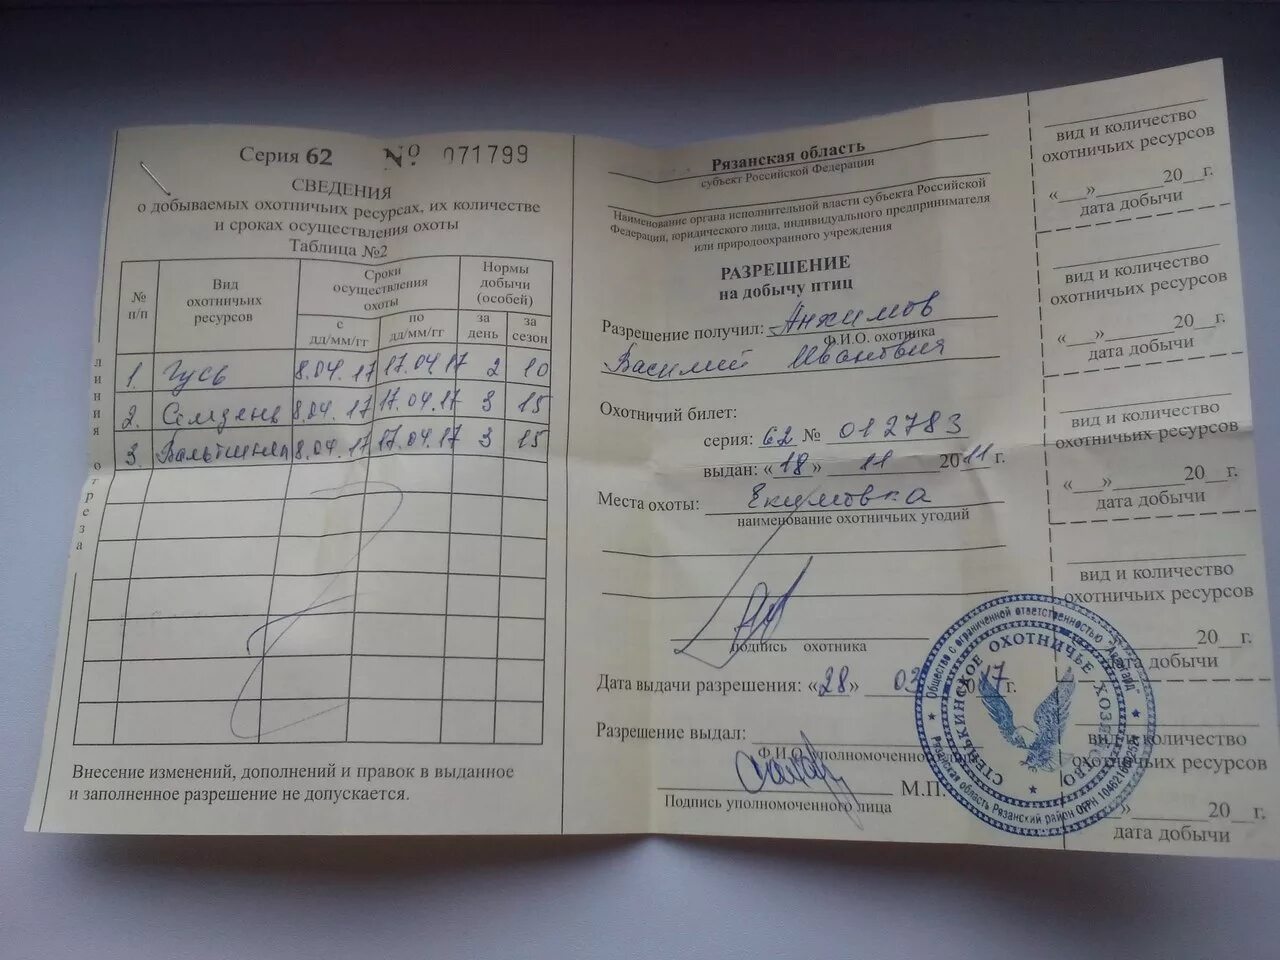 Серия 62 № 071799
СВЕДЕНИЯ
о добываемых охотничьих ресурсах, их количестве
и сроках осуществления охоты
Таблица №2
№ п/п
Вид охотничьих ресурсов
Сроки осуществления охоты
Нормы добычи (особей)
с дд/мм/гг
по дд/мм/гг
за день
за сезон
1. Гусь 8.04.17 17.04.17 2 10
2. Селезень 8.04.17 17.04.17 3 15
3. Вальдшнеп 8.04.17 17.04.17 3 15
линия отреза
Внесение изменений, дополнений и правок в выданное
и заполненное разрешение не допускается.
Рязанская область
субъект Российской Федерации
Наименование органа исполнительной власти субъекта Российской
Федерации, юридического лица, индивидуального предпринимателя
или природоохранного учреждения
РАЗРЕШЕНИЕ
на добычу птиц
Разрешение получил: Анхимов
Ф.И.О. охотника
Василий Иванович
Охотничий билет:
серия: 62 № 012783
выдан: «18» 11 2011 г.
Места охоты: Екимовка
наименование охотничьих угодий
подпись охотника
Дата выдачи разрешения: «28» 03 2017 г.
Разрешение выдал:
Ф.И.О. уполномоченного
М.П.
Подпись уполномоченного лица
Общество с ограниченной ответственностью "Авангард"
СТЕНЬКИНСКОЕ ОХОТНИЧЬЕ ХОЗЯЙСТВО
Рязанская область Рязанский район ОГРН
вид и количество
охотничьих ресурсов
«__»______20__г.
дата добычи
вид и количество
охотничьих ресурсов
«__»______20__г.
дата добычи
вид и количество
охотничьих ресурсов
«__»______20__г.
дата добычи
вид и количество
охотничьих ресурсов
20__г.
дата добычи
вид и количество
охотничьих ресурсов
» 20__г.
дата добычи